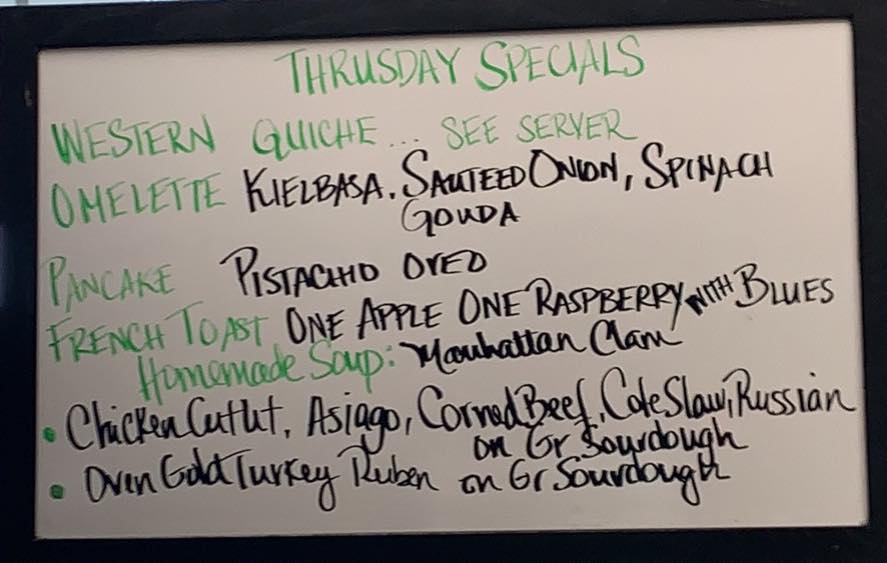 THRUSDAY SPECIALS
WESTERN QUICHE... SEE SERVER
OMELETTE KIELBASA. SAUTEED ONION, SPINACH
GOUDA
PANCAKE PISTACHIO OREO
FRENCH TOAST ONE APPLE ONE RASPBERRY WITH BLUES
Homemade Soup: Manhattan Clam
• Chicken Cutlut, Asiago, Corned Beef, Cole Slaw, Russian
on Gr Sourdough
• Oven Gold Turkey Ruben on Gr Sourdough